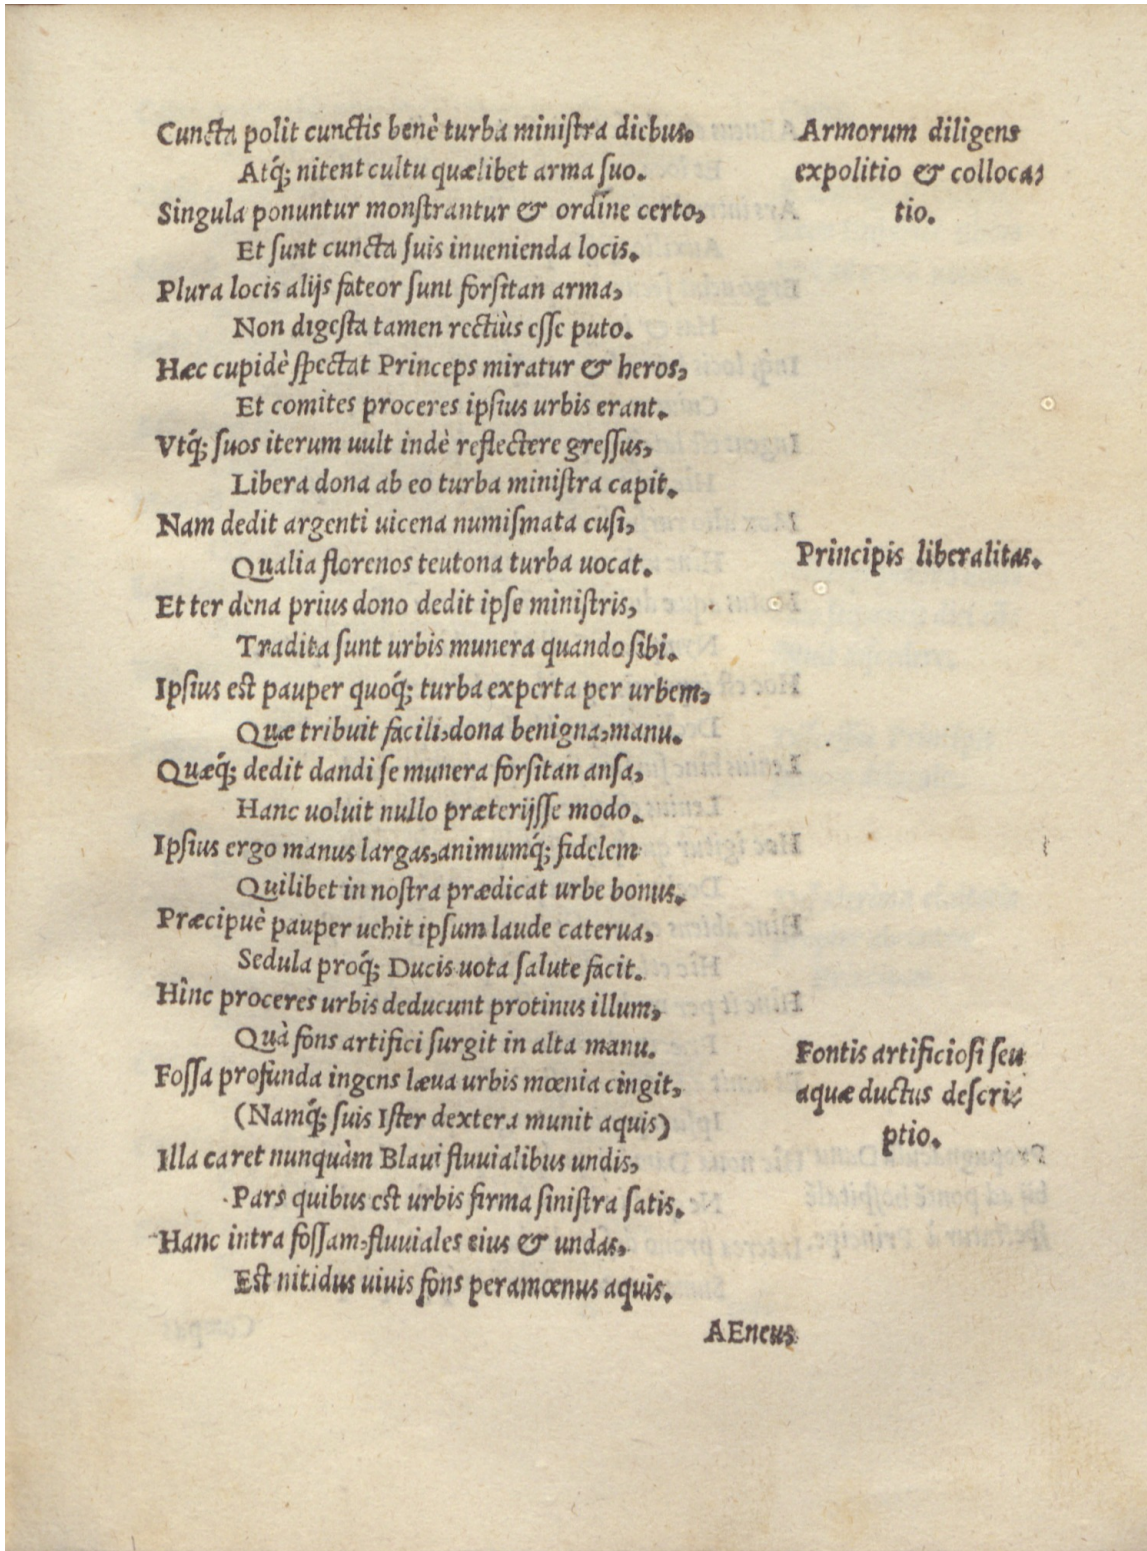 Cuncta polit cunctis benè turba ministra diebus.
Atq́; nitent cultu quælibet arma suo.
Singula ponuntur monstrantur & ordine certo,
Et sunt cuncta suis inuenienda locis.
Plura locis alijs fateor sunt forsitan arma,
Non digesta tamen rectiùs esse puto.
Hæc cupidè spectat Princeps miratur & heros,
Et comites proceres ipsius urbis erant.
Vtq́; suos iterum uult indè reflectere gressus,
Libera dona ab eo turba ministra capit.
Nam dedit argenti uicena numismata cusi,
Qualia florenos teutona turba uocat.
Et ter dena prius dono dedit ipse ministris,
Tradita sunt urbis munera quando sibi.
Ipsius est pauper quoq́; turba experta per urbem,
Quæ tribuit facili, dona benigna, manu.
Quæq́; dedit dandi se munera forsitan ansa,
Hanc uoluit nullo præterijsse modo.
Ipsius ergo manus largas, animumq́; fidelem
Quilibet in nostra prædicat urbe bonus.
Præcipuè pauper uehit ipsum laude caterua,
Sedula proq́; Ducis uota salute facit.
Hînc proceres urbis deducunt protinus illum,
Quà fons artifici surgit in alta manu.
Fossa profunda ingens læua urbis mœnia cingit,
(Namq́; suis Ister dextera munit aquis)
Illa caret nunquàm Blaui fluuialibus undis,
Pars quibus est urbis firma sinistra satis.
Hanc intra fossam, fluuiales eius & undas,
Est nitidus uiuis fons peramœnus aquis.
AEneus
Armorum diligens
expolitio & colloca-
tio.
Principis liberalitas.
Fontis artificiosi seu
aquæ ductus descri-
ptio.